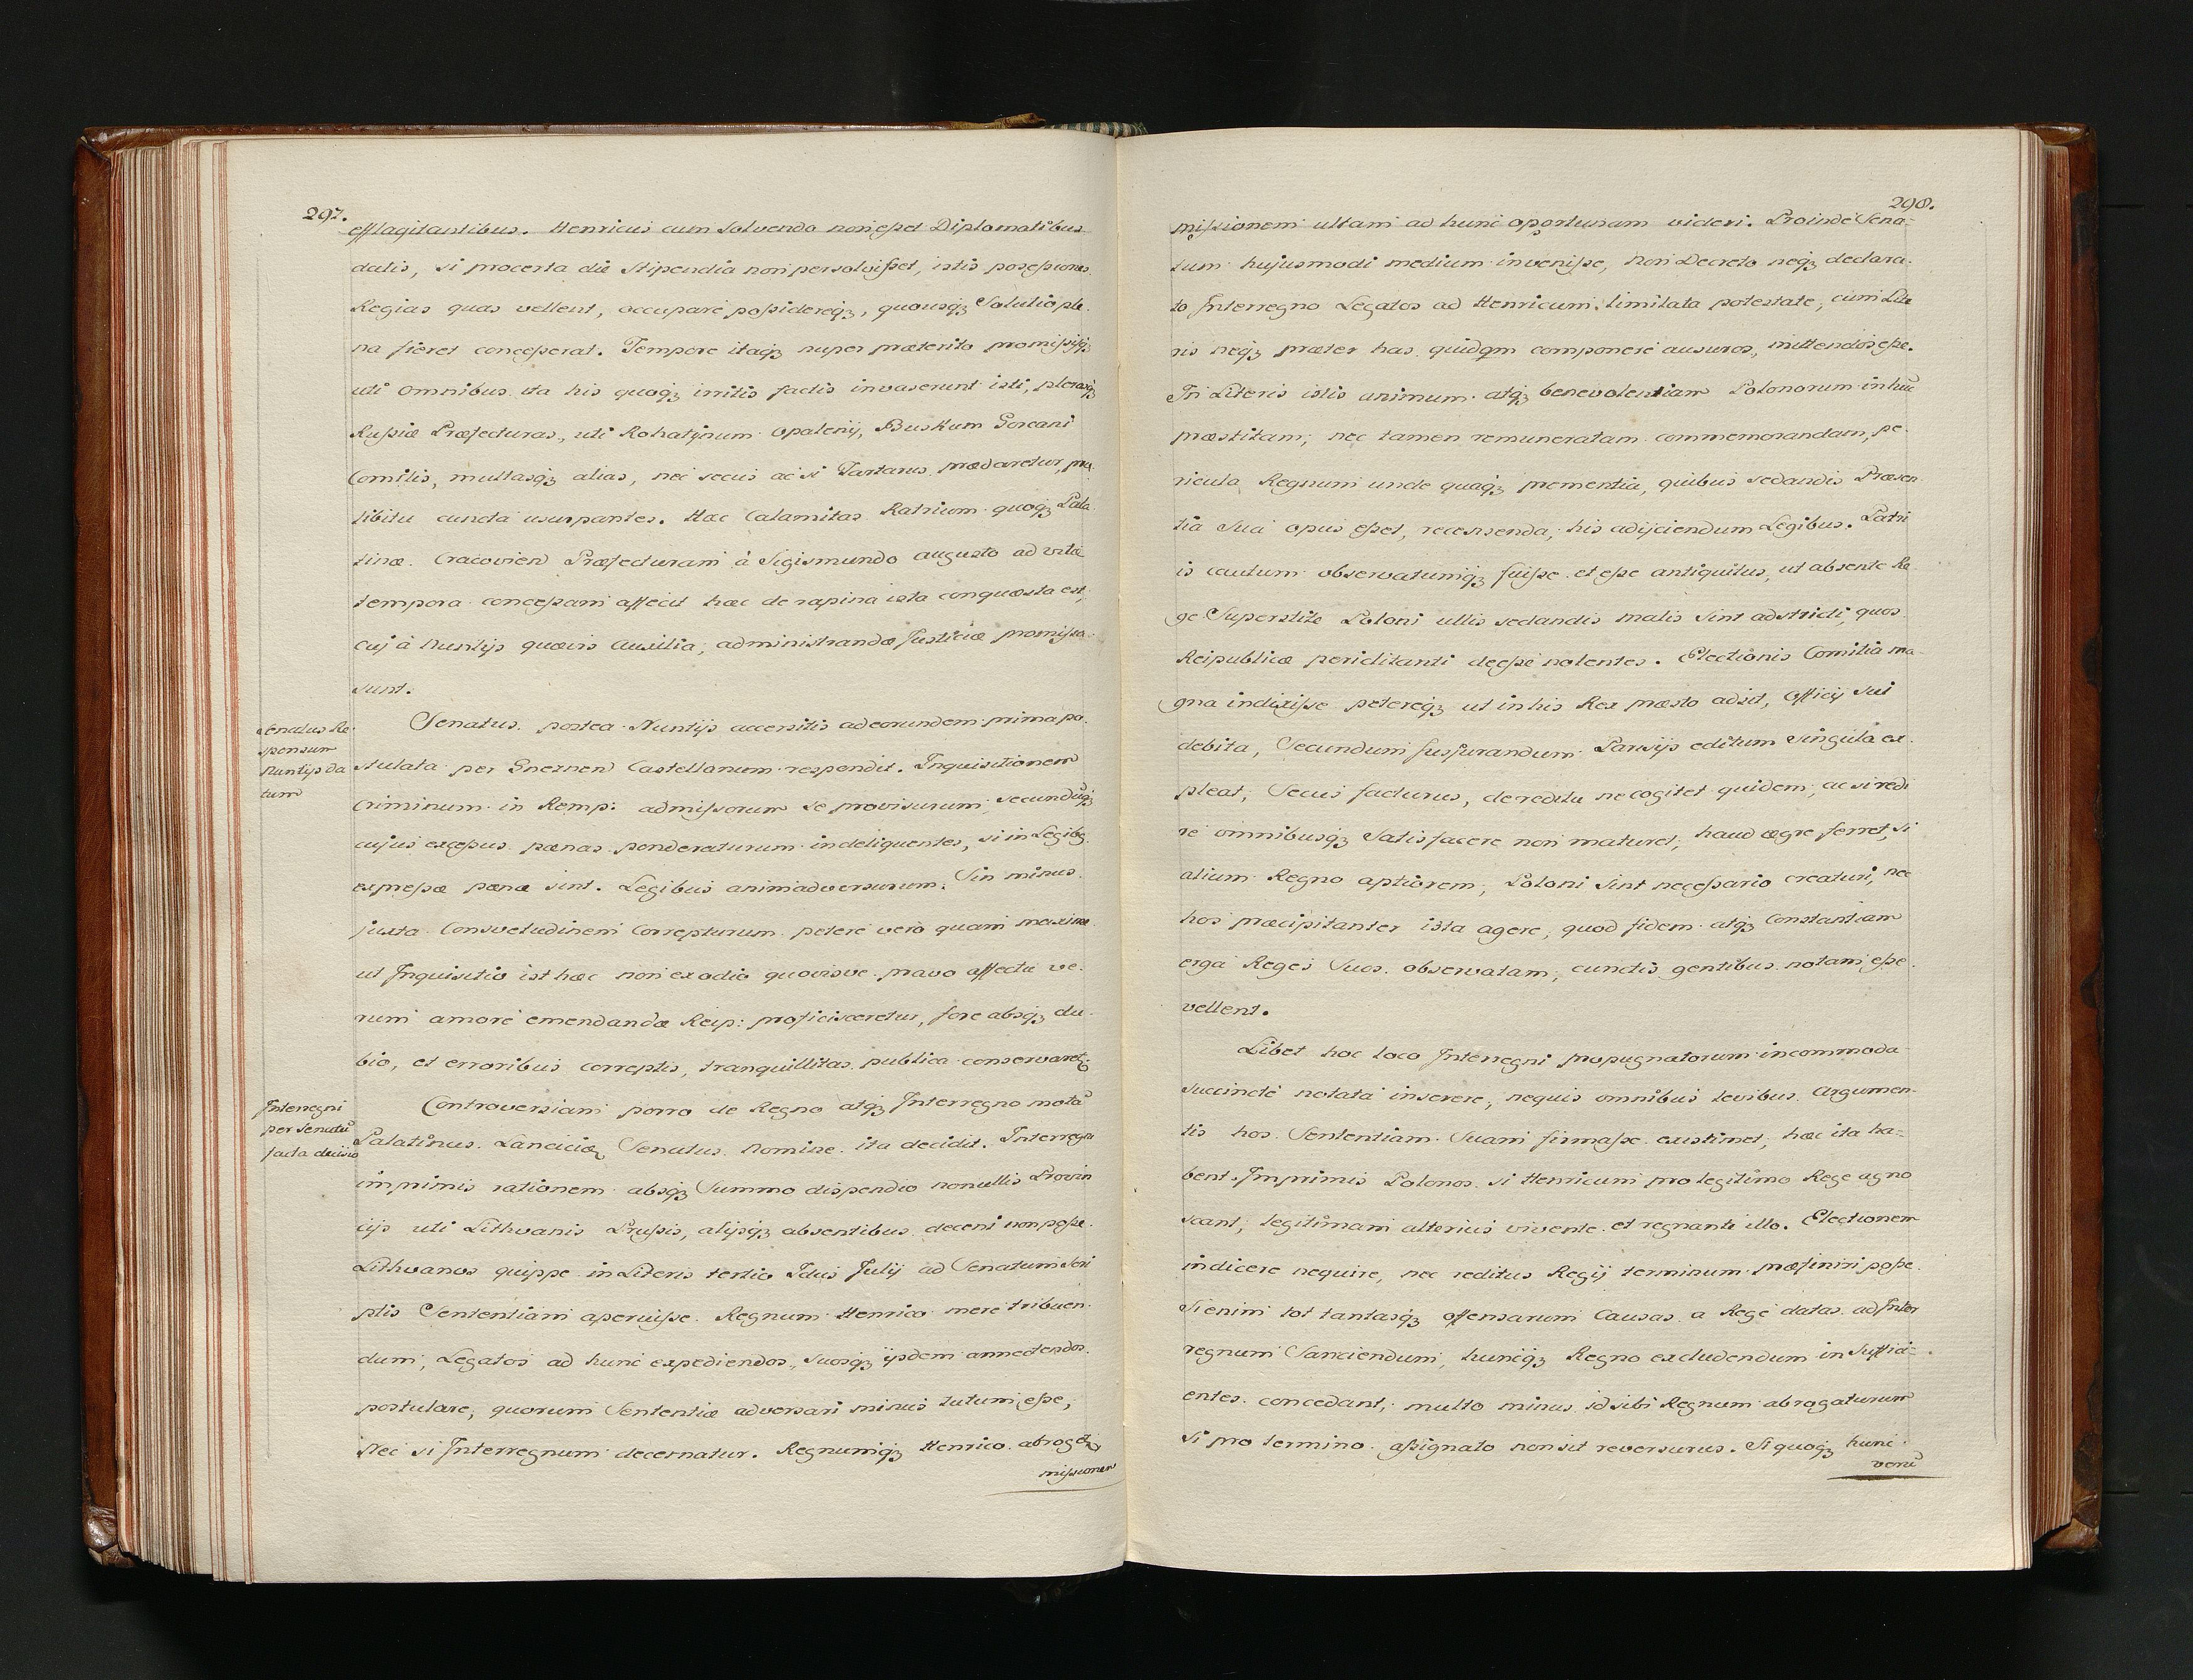 297.
efflagitantibus. Henricus cum Solvendo non eßet Diplomatibus
datis, si procerta die Stipendia non persolvißet, istis poseßiones
Regias quas vellent, occupare poßidereqꝫ, quousqꝫ Solutio ple-
na fieret conceßerat. Tempore itaqꝫ nuper præterito promißisqꝫ
uti omnibus ita his quoqꝫ irritis factis invaserunt isti, plerasqꝫ
Rußiæ Præfecturas, uti Rohatÿnum Opalenij, Buskum Goreani
Comitis, multasqꝫ alias, nec secus ac si Tartarus prædaretur, pro
libitu cuncta usurpantes. Hæc Calamitas Ratnium quoqꝫ Pala-
tinæ Cracovien Præfecturam à Sigismundo augusto ad vitæ
tempora conceßam affecit hæc de rapina ista conquæsta est,
cuj à Nuntijs quævis Auxilia, administrandæ Justiciæ promißa
sunt.
Senatus Re-
sponsum
Nuntijs da
tum
Senatus postea Nuntijs accersitis ad eorundem prima po-
stulata per Gneznen Castellanum respondit. Inquisitionem
criminum in Remp: admißorum se provisurum, secundũqꝫ
cujus exceßus pænas ponderaturum in deliquentes, si in Legibꝫ
expreßæ pænæ sint. Legibus animadversurum. Sin minus
juxta Consvetudinem Correpturum petere vero quam maxime
ut Inquisitio ist hæc non ex odio quovisve pravo affectu ve-
rum amore emendandæ Reip: proficisceretur, fore absqꝫ du-
bio, et erroribus correptis, tranquillitas publica conservaretꝫ
Interregni
per Senatũ
facta decisio
Controversiam porro de Regno atqꝫ Interregno motã
Palatinus Lanciciæ Senatus Nomine ita decidit. Interregni
imprimis rationem absqꝫ Summo dispendio nonullis Provin
cijs uti Lithvanis Prußis, alijsqꝫ absentibus decerni non poße
Lithvanos quippe in Literis tertio Idus Julij ad Senatum Scri
ptis Sententiam aperuiße Regnum Henrico mere tribuen-
dum, Legatos ad hunc expediendos, suosqꝫ ijsdem annectendos
postulare, quorum Sententiæ adversari minus tutum eße,
Nec si Interregnum decernatur. Regnumqꝫ Henrico abrogetꝫ
mißionem
298.
mißionem ullam ad hunc oportunam videri. Proinde Sena-
tum hujusmodi medium inveniße, non Decreto neqꝫ declara-
to Interregno Legatos ad Henricum limitata potestate, cum Lite
ris neqꝫ præter has quidqm componere ausuros, mittendos eße.
In Literis istis animum atqꝫ benevolentiam Polonorum in hũc
præstitam, nec tamen remuneratam commemorandam, pe-
ricula Regnum unde quaqꝫ prementia, quibus sedandis Præsen
tia Sua opus eßet, recensenda, his adijciendum Legibus. Patri
is cautum observatumqꝫ fuiße et eße antiquitus, ut absente Re
ge Superstite Poloni ullis sedandis malis Sint adstricti, quos
Reipublicæ periclitanti deeße nolentes. Electionis Comitia ma-
gna indixiße petereqꝫ ut in his Rex præsto adsit, Officij Sui
debita, Secundum Jusjurandum Parisijs editum Singula ex-
pleat, Secus facturus, de reditu ne cogitet quidem, ac si redi
re omnibusqꝫ Satisfacere non maturet, haud ægre ferret, si
alium Regno aptiorem, Poloni Sint neceßario creaturi, nec
hos præcipitanter ista agere, quod fidem atqꝫ Constantiam
erga Reges Suos observatam, cunctis gentibus notam eße
vellent.
Libet hoc loco Interregni propugnatorum incommoda
succincte notata inserere, nequis omnibus levibus Argumen-
tis hos Sententiam Suam firmaße existimet, hæc ita ha-
bent. Imprimis Polonos si Henricum pro legitimo Rege agno
scant, legitimam alterius vivente et regnante illo. Electionem
indicere nequire, nec reditus Regij terminum præfiniri poße.
Si enim tot tantasqꝫ offensarum Causas a Rege datas ad Inter
regnum Sanciendum, huncqꝫ Regno excludendum in Suffici-
entes concedant, multo minus id sibi Regnum abrogaturum
Si pro termino aßignato non sit reversurus. Si quoqꝫ hunc
venĩ